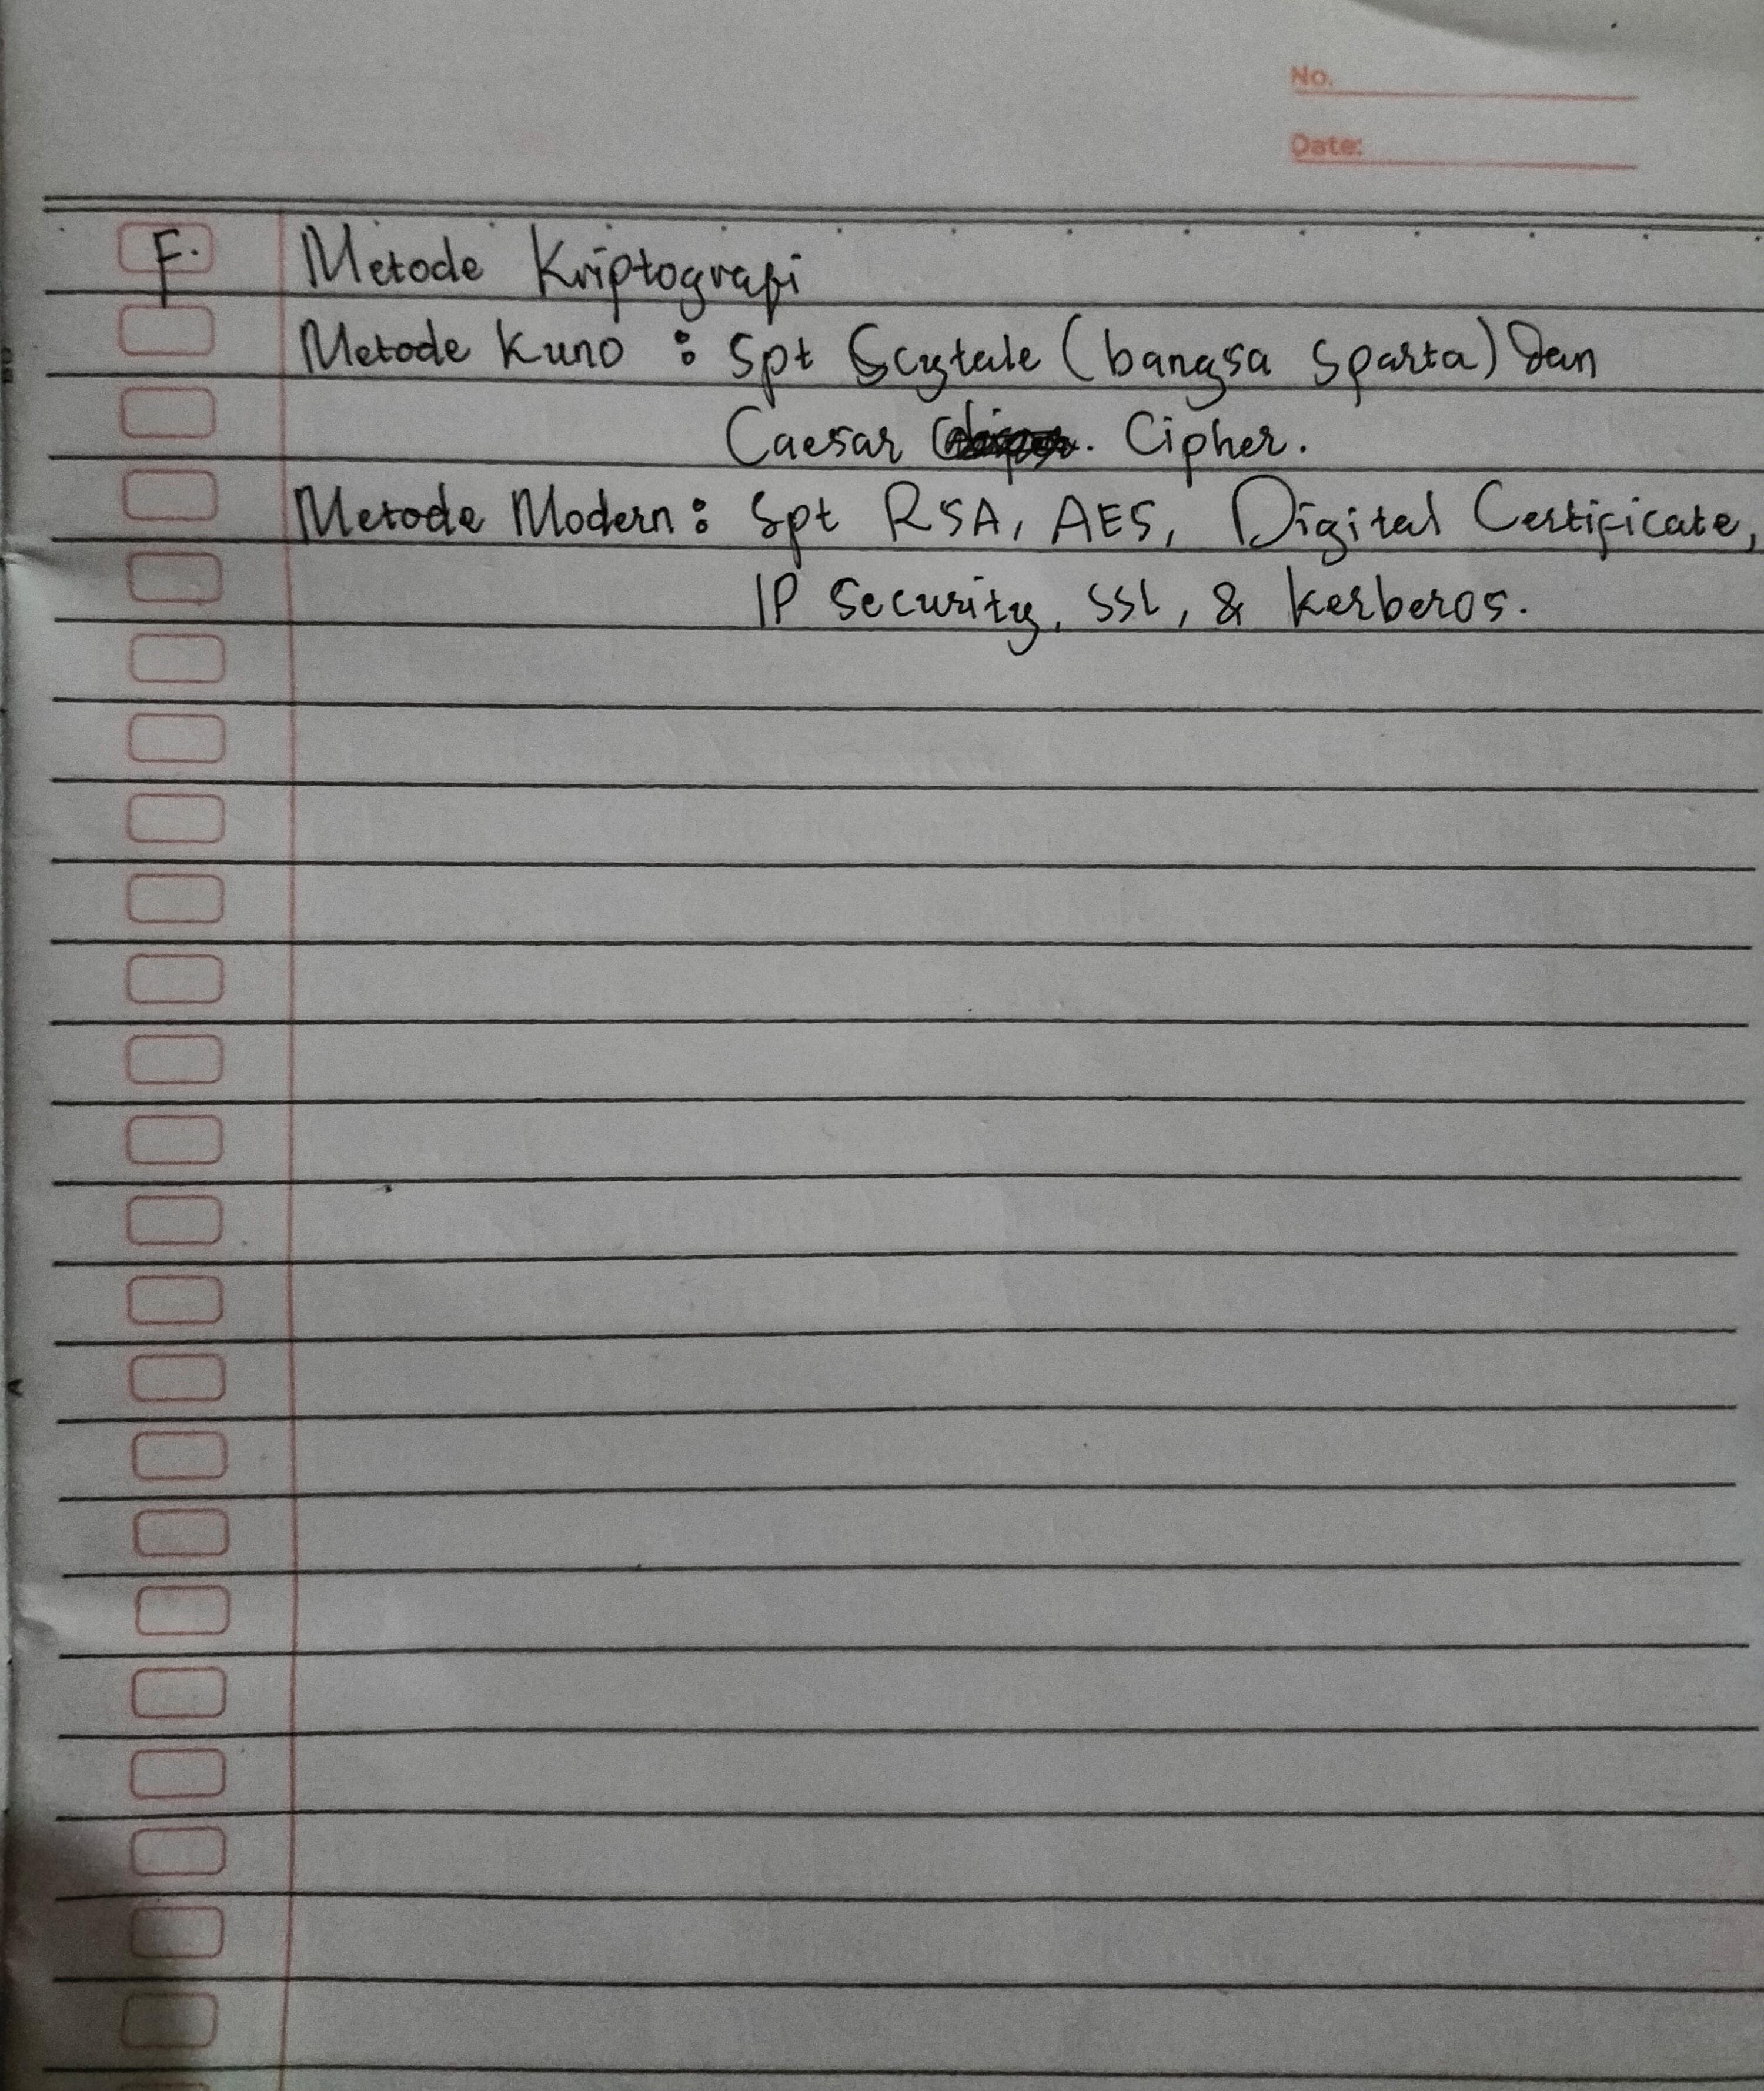 No.
Date:
F. Metode Kriptografi
Metode Kuno : Spt Scytale (bangsa Sparta) Dan
Caesar Cipher.
Metode Modern : Spt RSA, AES, Digital Certificate,
IP Security, SSL, & Kerberos.